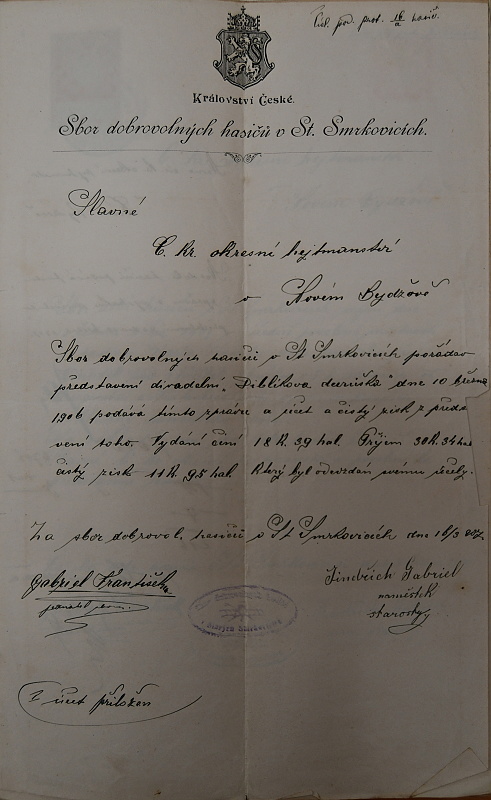 Čís. pod. prot. 16/a hasič.
Království České.
Sbor dobrovolných hasičů v St. Smrkovicích.
Slavné
C. kr. okresní hejtmanství
v Novém Bydžově
Sbor dobrovolných hasičů v St Smrkovicích pořádav
představení divadelní „Diblíkova dceruška" dne 10 března
1906 podává tímto zprávu a účet a čistý zisk z předs
vení toho. Vydání činí 18 K. 39 hal. Příjem 30 K. 34 hal
čistý zisk 11 K. 95 hal. Který byl odevzdán svému účely.
Za sbor dobrovol. hasičů v St Smrkovicích dne 16/3
Gabriel František
jednatel
Jindřich Gabriel
náměstek
starosty
I účet přiložen